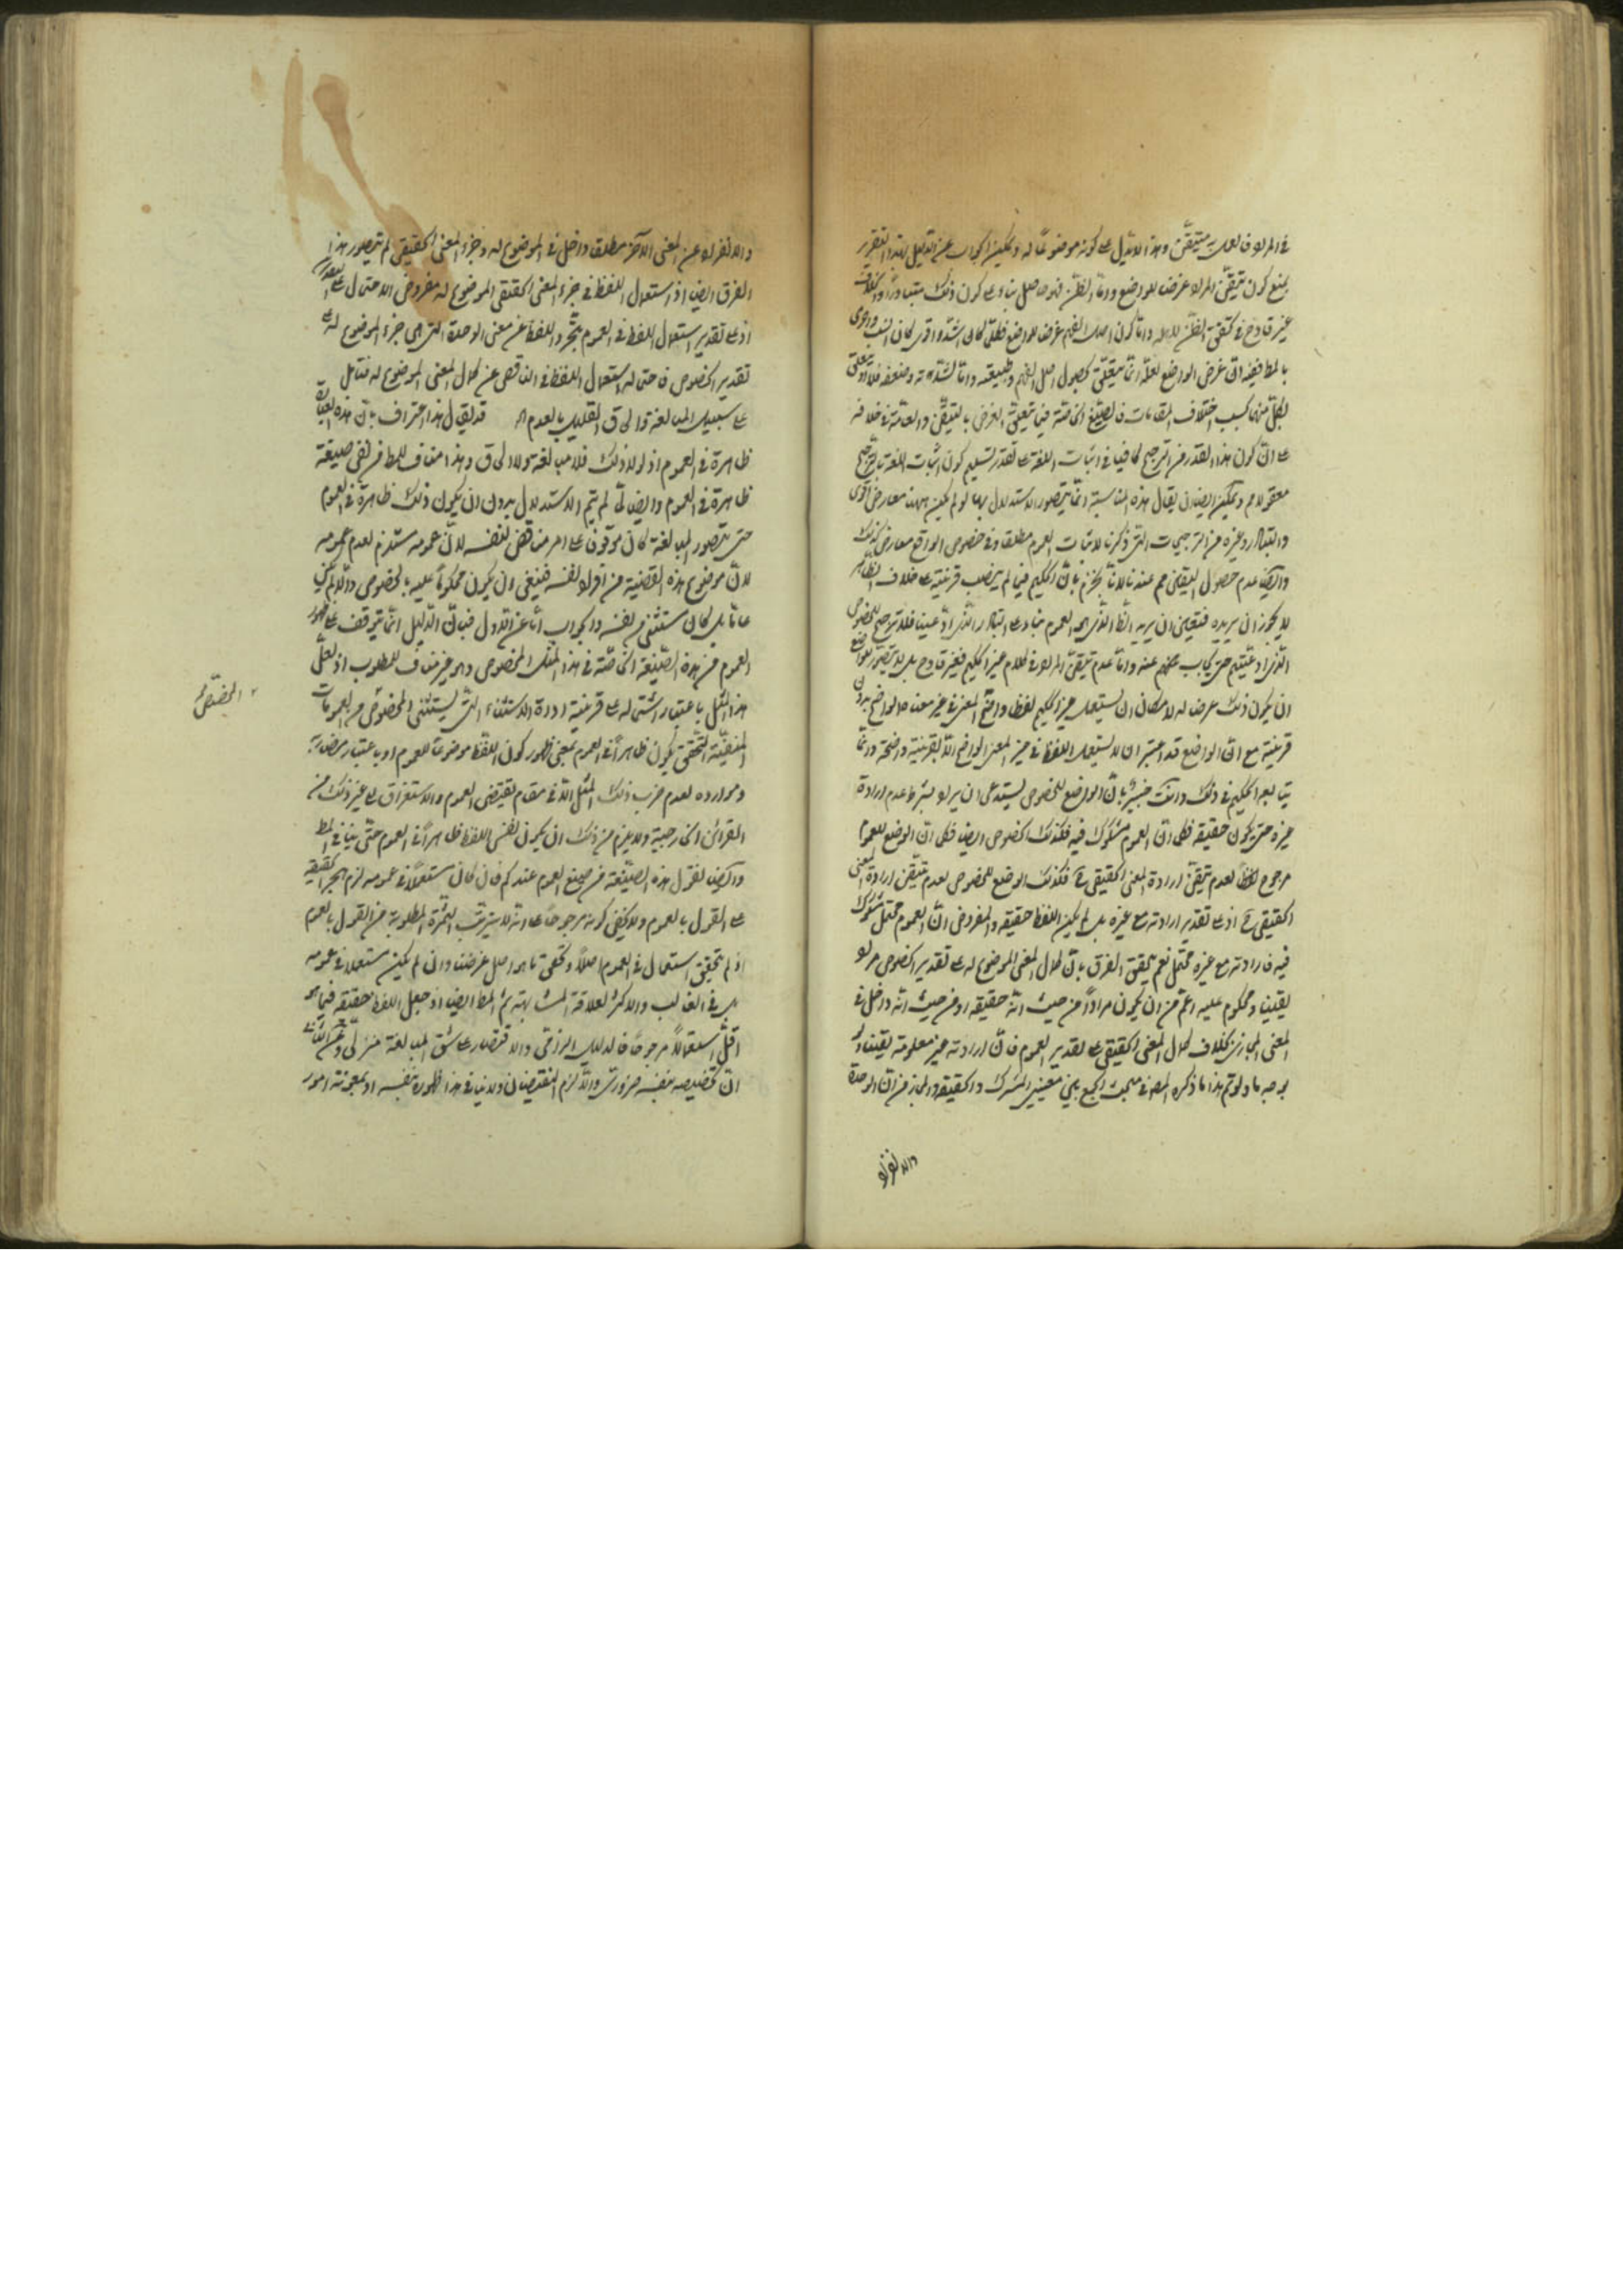 في المراد فانه متيقن وهذا لا يدل على كونه موضوعا له ويمكن الجواب عن الدليل بهذا التقرير
بمنع كون تيقن المراد غرض للواضع واما الظن فهو حاصل بناء على كون ذلك متبادرا
غير قادح في تحقق الظن للدلالة واما كون اصل الفهم غرض للواضع فكلما كان اشد واقوى كان انسب
بالمط ففيه ان غرض الواضع لعله انما يتعلق بحصول اصل الفهم وطبيعته واما لشدته وضعفه فلا
بحسب اختلاف المقامات فالصيغ الخاصة فيما يتعلق الغرض بالتيقن والعامة في خلافه
على ان كون هذا القدر من الترجيح كافيا في اثبات اللغة على تقدير تسليم كون اثبات اللغة بالترجيح
معقولا مم ويمكن ايضا ان يقال هذه المناسبة انما يتصور الاستدلال بها لو لم يكن بها معارض اقوى
والتبادر وغيره من الترجيحات التي ذكرنا لاثبات العموم مطلقا وفي خصوص الواقع معارض لذلك
وايضا عدم حصول اليقين مم عندنا لانا نجزم بان الحكيم فيما لم ينصب قرينة على خلاف الظاهر
لا يجوز ان يريده فتعين ان يريد الظ الذي هو العموم بناء على التبادر الذي ادعينا فلا ترجيح للخصوص
الذي ادعيتم حتى يجاب عنه واما عدم تيقن المراد في كلام غير الحكيم فغير قادح بل لا يتصور للواضع
ان يكون ذلك غرض له لامكان ان يستعمل غير الحكيم لفظا واضح المعنى في غير معناه الواضح بدون
قرينة مع ان الواضع قد اعتبر ان لا يستعمل اللفظ في غير المعنى الواضح الا بقرينة واضحة وانما
يتابعه الحكيم في ذلك وانت خبير بان الوضع للخصوص يستدعي ان يراد بشرط عدم ارادة
غيره حتى يكون حقيقة فكما ان العموم مشكوك فيه فكذلك الخصوص ايضا فكما ان الوضع للعموم
مرجوح لعدم تيقن ارادة المعنى الحقيقي فكذلك الوضع للخصوص لعدم تيقن ارادة المعنى
الحقيقي اذ على تقدير ارادته مع غيره لم يكن اللفظ حقيقة والمفروض ان العموم محتمل مشكوك
فيه فارادته مع غيره محتمل نعم يتحقق الفرق بان كمال المعنى الموضوع له على تقدير الخصوص مراد
يقينا ومحكوم عليه اعم من ان يكون مرادا من حيث انه حقيقة او من حيث انه داخل في
المعنى المجازي بخلاف كمال المعنى الحقيقي على تقدير العموم فان ارادته غير معلومة يقينا
بوجه ما ولو تم هذا ما ذكره المص في مبحث الجمع بين معنيي المشترك والحقيقة والمجاز من ان الوحدة
والانفراد
والانفراد عن المعنى الآخر مطلقا داخل في الموضوع له وجزء المعنى الحقيقي لم يتصور هذا
الفرق ايضا اذ استعمال اللفظ في جزء المعنى الحقيقي الموضوع له مفروض الاحتمال على
اذ على تقدير استعمال اللفظ في العموم يتجرد اللفظ عن معنى الوحدة التي هي جزء الموضوع له على
تقدير الخصوص فاحتماله استعمال اللفظ في الناقص عن كمال المعنى الموضوع له فتامل
على سبيل المبالغة والحاق القليل بالعدم اه قد يقال هذا اعتراف بان هذه العبارة
ظاهرة في العموم اذ لولا ذلك فلا مبالغة ولا الحاق وهذا مناف للمط من نفي صيغة
ظاهرة في العموم وايضا لم يتم الاستدلال بدون ان يكون ذلك ظاهرة في العموم
حتى يتصور المبالغة كان موقوفا على امر مناقض لنفسه لان عمومه مستلزم لعدم عمومه
لان موضوع هذه القضية من افراد نفسه فينبغي ان يكون محكوما عليه بالخصوص والا لم يكن
عاما بل كان مستثنى لنفسه والجواب اما عن الاول فبان الدليل انما يتوقف على ظهور
العموم من هذه الصيغة الخاصة في هذا المثل المخصوص وهو غير مناف للمطلوب اذ لعل
هذا المثل باعتبار اشتماله على قرينة اداة الاستثناء التي يستثنى المخصوص من العمومات
المنفية التحقق يكون ظاهرا في العموم بمعنى ظهور كون اللفظ موضوعا للعموم او باعتبار مضربه
وموارده لعدم ضرب ذلك المثل الا في مقام يقتضي العموم والاستغراق الى غير ذلك من
القرائن الخارجية ولا يلزم من ذلك ان يكون نفس اللفظ ظاهرا في العموم حتى ينافي المط
وايضا نقول هذه الصيغة من صيغ العموم عندكم فان كان مستعملا في عمومه لزم
على القول بالعموم ولا يكفي كونه مرجوحا على انه لا يترتب الثمرة المطلوبة من القول بالعموم
اذ لم يتحقق استعمال في العموم اصلا وتحقق ما هو اصل غرضنا وان لم يكن مستعملا في عمومه
بل في الغالب والاكثر لعلاقة المشابهة ثم المط ايضا اذ جعل اللفظ حقيقة فيما هو
اقل استعمالا مرجوحا فالدليل الزامي والاقتصار على شق المبالغة
ان تخصيصه بنفسه ضروري والا لزم النقيضان ولا ينافي هذا ظهوره بنفسه او بمعونة امور
المخصص